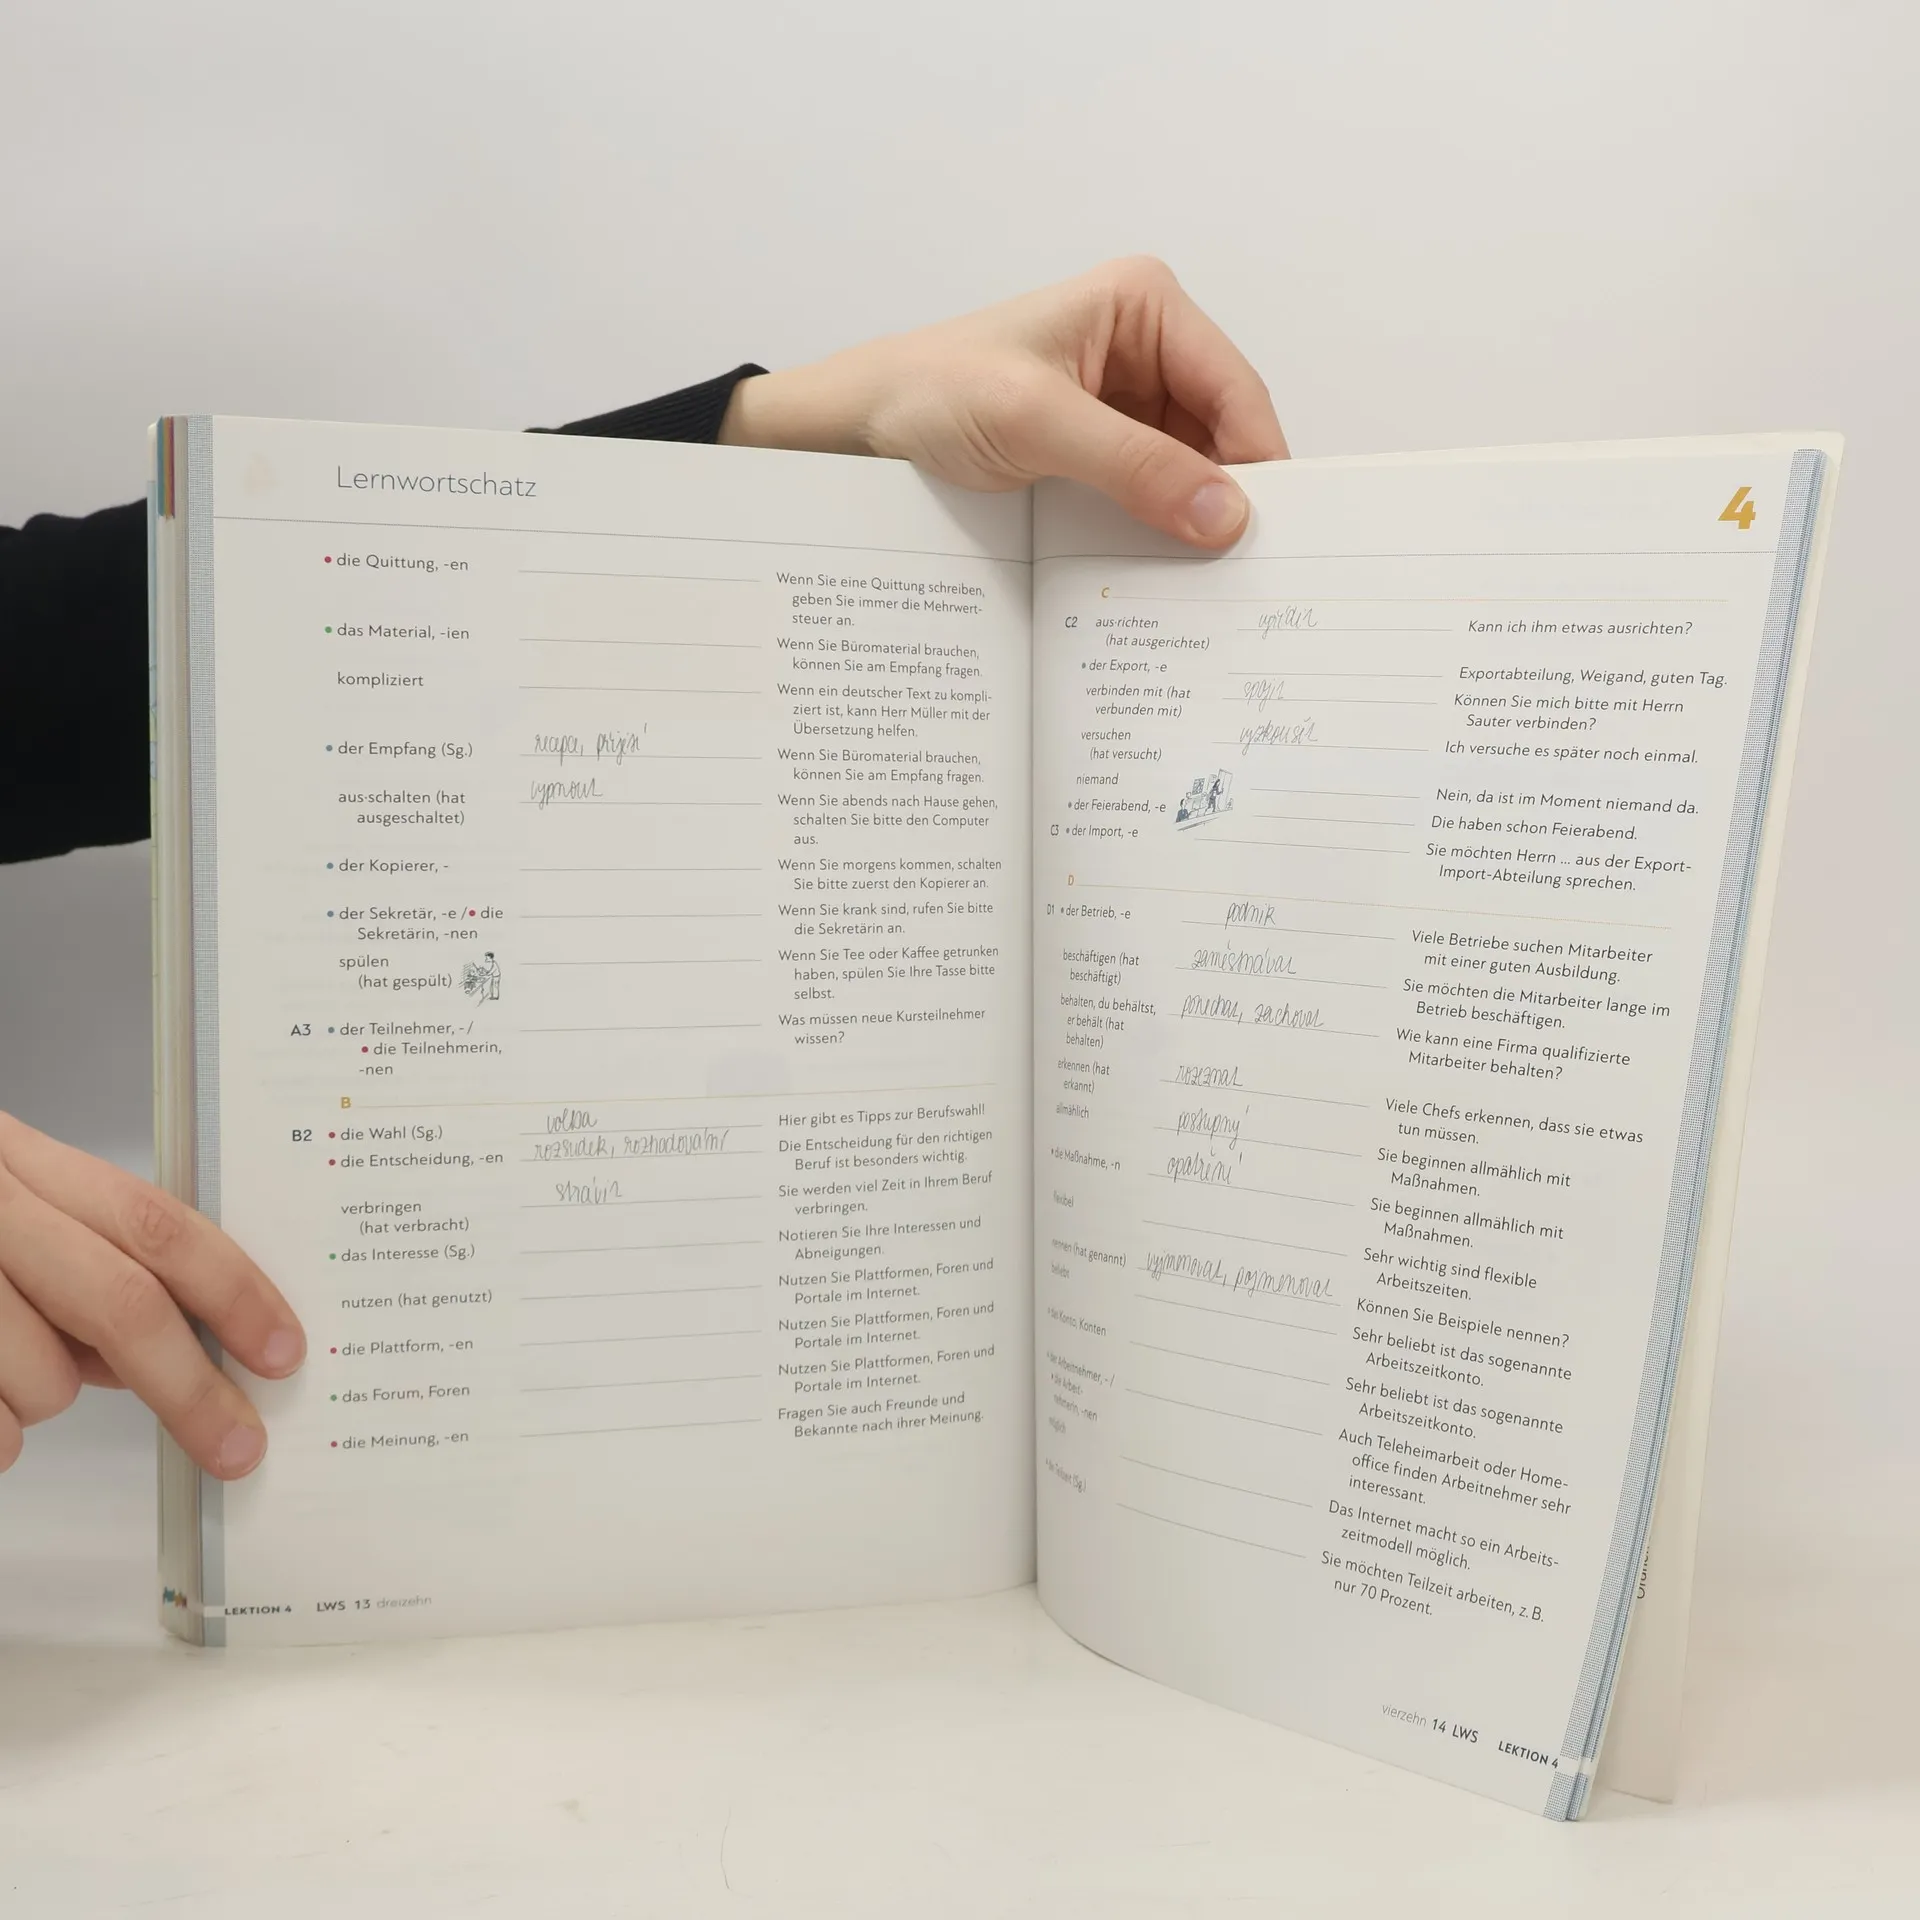 Lernwortschatz
die Quittung, -en
Wenn Sie eine Quittung schreiben,
geben Sie immer die Mehrwert-
steuer an.
das Material, -ien
Wenn Sie Büromaterial brauchen,
können Sie am Empfang fragen.
kompliziert
Wenn ein deutscher Text zu kompli-
ziert ist, kann Herr Müller mit der
Übersetzung helfen.
der Empfang (Sg.) recepce, přijetí
Wenn Sie Büromaterial brauchen,
können Sie am Empfang fragen.
aus·schalten (hat vypnout
ausgeschaltet)
Wenn Sie abends nach Hause gehen,
schalten Sie bitte den Computer
aus.
der Kopierer, -
Wenn Sie morgens kommen, schalten
Sie bitte zuerst den Kopierer an.
der Sekretär, -e / die
Sekretärin, -nen
Wenn Sie krank sind, rufen Sie bitte
die Sekretärin an.
spülen
(hat gespült)
Wenn Sie Tee oder Kaffee getrunken
haben, spülen Sie Ihre Tasse bitte
selbst.
A3 der Teilnehmer, - /
die Teilnehmerin,
-nen
Was müssen neue Kursteilnehmer
wissen?
B
B2 die Wahl (Sg.) volba Hier gibt es Tipps zur Berufswahl!
die Entscheidung, -en rozsudek, rozhodování
Die Entscheidung für den richtigen
Beruf ist besonders wichtig.
verbringen strávit
(hat verbracht)
Sie werden viel Zeit in Ihrem Beruf
verbringen.
das Interesse (Sg.)
Notieren Sie Ihre Interessen und
Abneigungen.
nutzen (hat genutzt)
Nutzen Sie Plattformen, Foren und
Portale im Internet.
die Plattform, -en
Nutzen Sie Plattformen, Foren und
Portale im Internet.
das Forum, Foren
Nutzen Sie Plattformen, Foren und
Portale im Internet.
die Meinung, -en
Fragen Sie auch Freunde und
Bekannte nach ihrer Meinung.
LEKTION 4 LWS 13 dreizehn
4
C
C2 aus·richten vyřídit Kann ich ihm etwas ausrichten?
(hat ausgerichtet)
der Export, -e Exportabteilung, Weigand, guten Tag.
verbinden mit (hat spojit
verbunden mit)
Können Sie mich bitte mit Herrn
Sauter verbinden?
versuchen vyzkoušet Ich versuche es später noch einmal.
(hat versucht)
niemand Nein, da ist im Moment niemand da.
der Feierabend, -e Die haben schon Feierabend.
C3 der Import, -e
Sie möchten Herrn ... aus der Export-
Import-Abteilung sprechen.
D
D1 der Betrieb, -e podnik
Viele Betriebe suchen Mitarbeiter
mit einer guten Ausbildung.
beschäftigen (hat zaměstnávat
beschäftigt)
Sie möchten die Mitarbeiter lange im
Betrieb beschäftigen.
behalten, du behältst, ponechat, zachovat
er behält (hat
behalten)
Wie kann eine Firma qualifizierte
Mitarbeiter behalten?
erkennen (hat rozeznat
erkannt)
Viele Chefs erkennen, dass sie etwas
tun müssen.
allmählich postupný
Sie beginnen allmählich mit
Maßnahmen.
die Maßnahme, -n opatření
Sie beginnen allmählich mit
Maßnahmen.
flexibel
Sehr wichtig sind flexible
Arbeitszeiten.
nennen (hat genannt) vyjmenovat, pojmenovat
Können Sie Beispiele nennen?
beliebt
Sehr beliebt ist das sogenannte
Arbeitszeitkonto.
das Konto, Konten
Sehr beliebt ist das sogenannte
Arbeitszeitkonto.
der Arbeitnehmer, - /
die Arbeit-
nehmerin, -nen
Auch Teleheimarbeit oder Home-
office finden Arbeitnehmer sehr
interessant.
möglich
Das Internet macht so ein Arbeits-
zeitmodell möglich.
die Teilzeit (Sg.)
Sie möchten Teilzeit arbeiten, z. B.
nur 70 Prozent.
vierzehn 14 LWS LEKTION 4